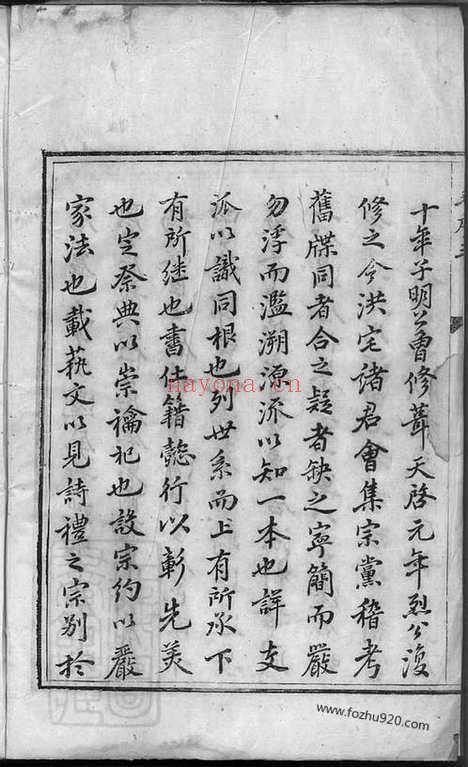 十年子明公曾修葺天啓元年烈公復
修之今洪宅諸君會集宗黨稽考
舊牒同者合之疑者缺之寧簡而嚴
勿浮而濫溯源流以知一本也詳支
派以識同根也列世系而上有所承下
有所继也書仕籍懿行以彰先美
也定祭典以崇禴祀也設宗約以嚴
家法也載藝文以見詩禮之宗别於
nayona.cn
www.fozhu920.com